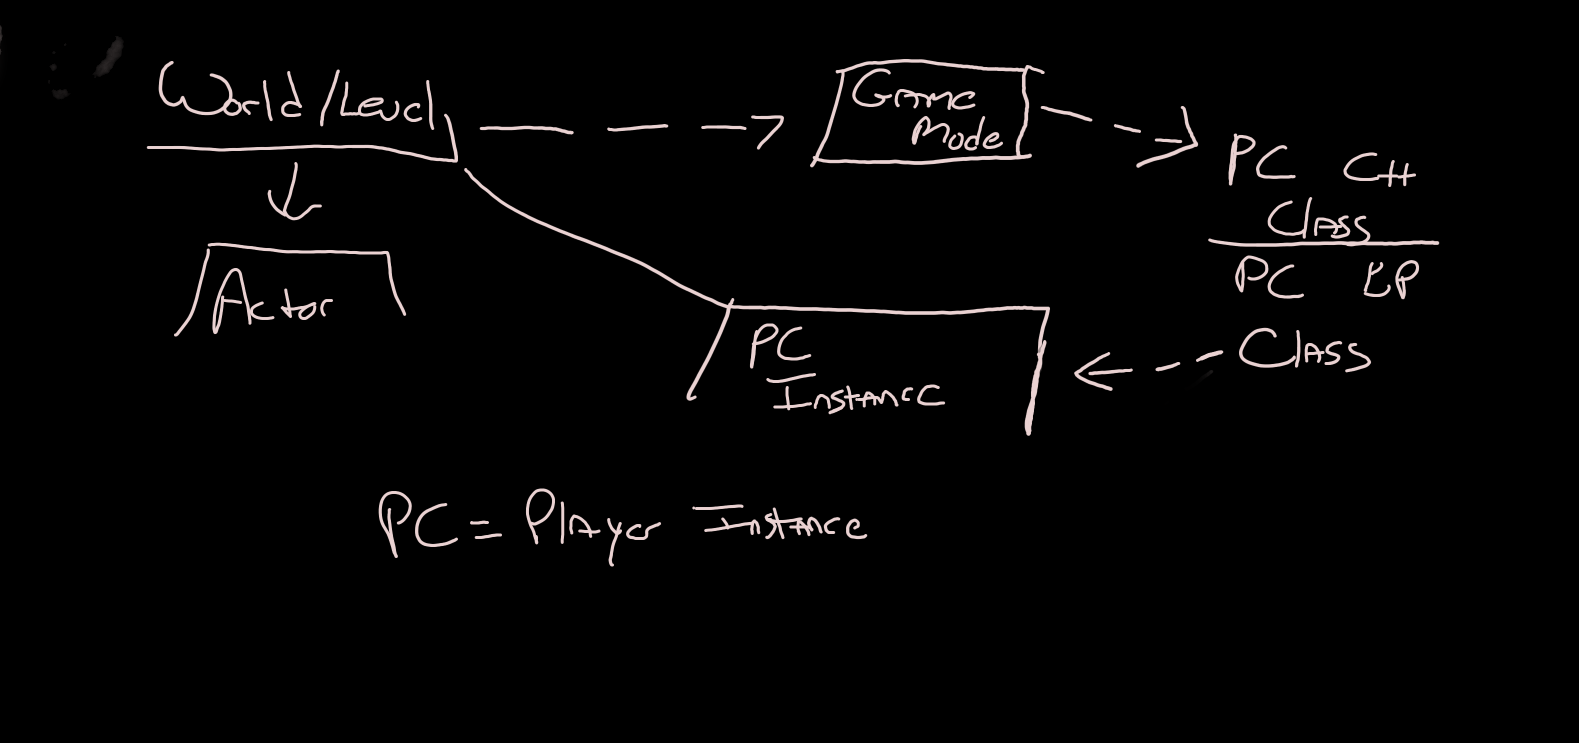 World/Level
Game
Mode
PC C++
Class
PC BP
Class
Actor
PC
Instance
PC = Player Instance